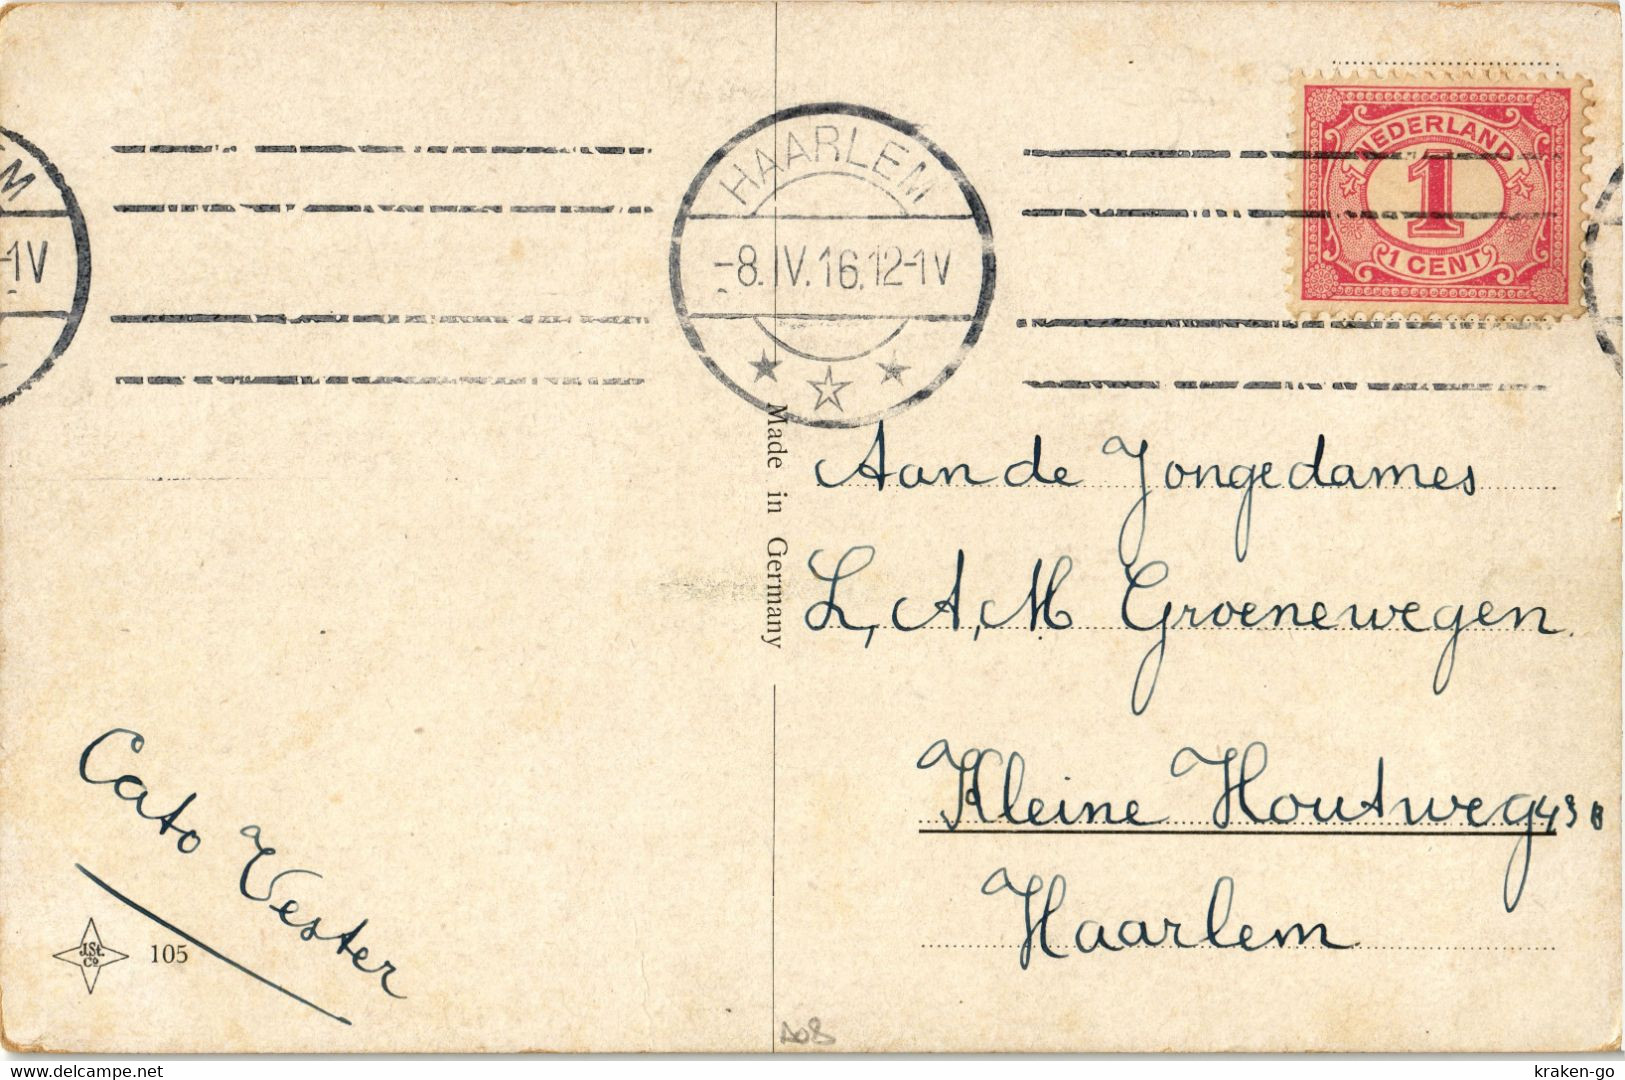 HAARLEM
-8.IV.16.12-1V
EM
-1V
NEDERLAND
1
1 CENT
Made in Germany
Aan de Jongedames
L, A, M Groenewegen.
Kleine Houtweg 43 B
Haarlem
Cato Vester
J.St.
Co
105
delcampe.net
kraken-go